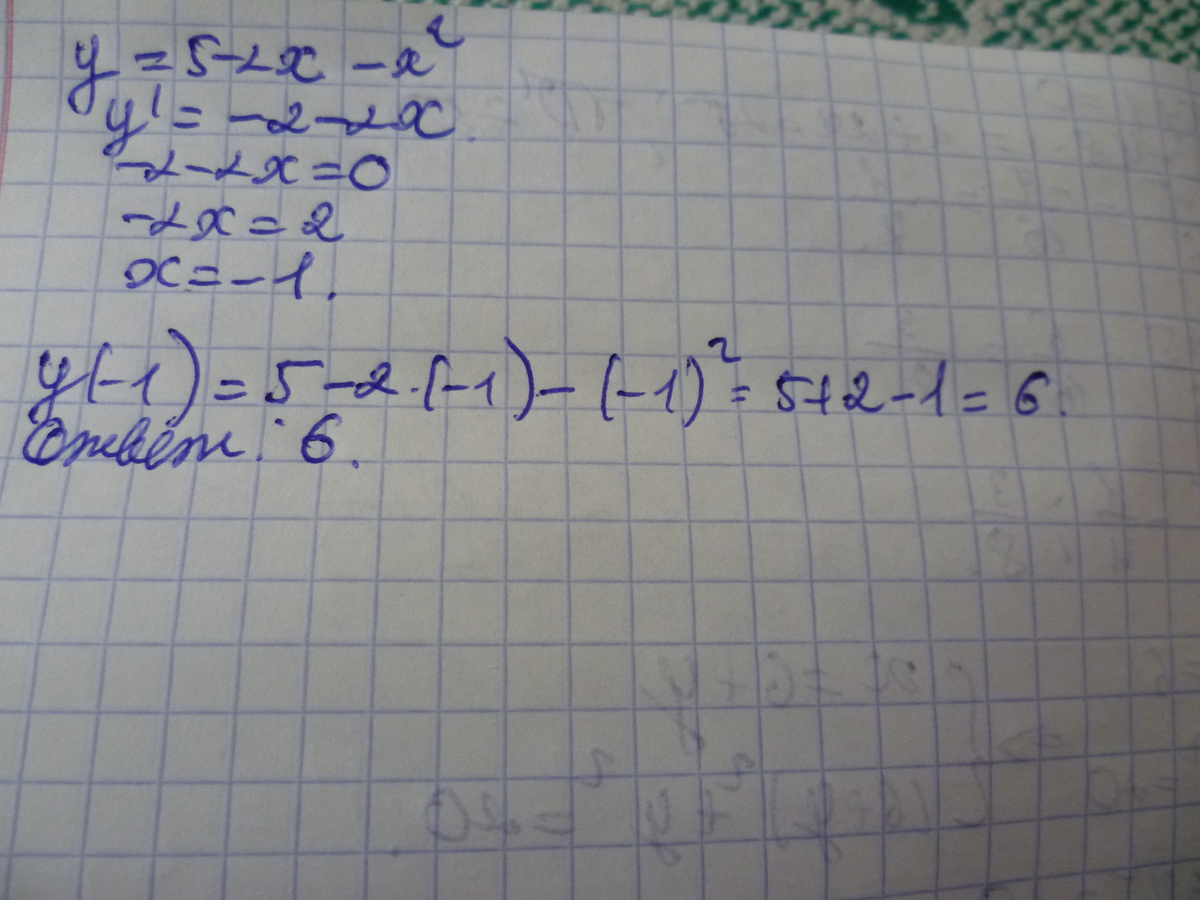 y = 5-2x -x²
y' = -2-2x.
-2-2x=0
-2x=2
x=-1.
y(-1) = 5-2·(-1)-(-1)² = 5+2-1=6.
Ответ: 6.